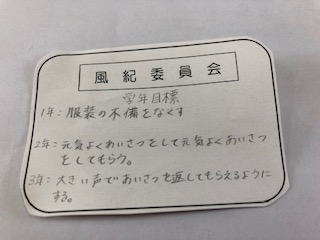 風紀委員会
学年目標
1年：服装の不備をなくす
2年：元気よくあいさつをして元気よくあいさつ
をしてもらう。
3年：大きい声であいさつを返してもらえるように
する。